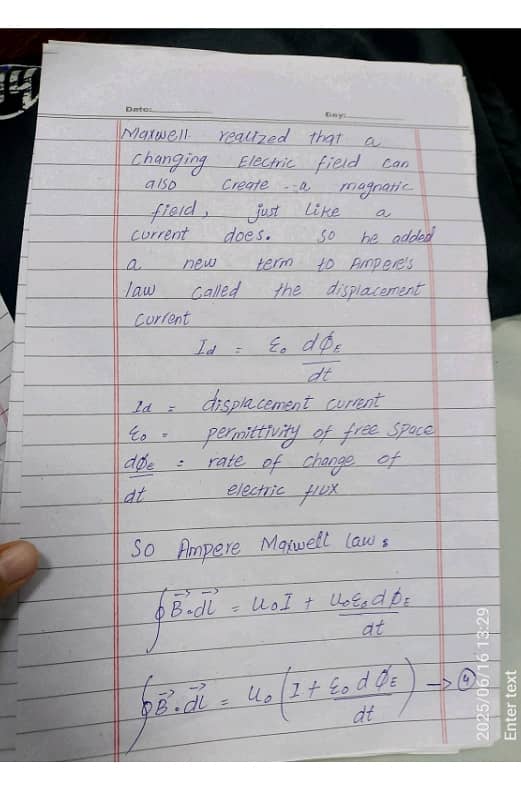 Date:
Day:
Maxwell realized that a
changing Electric field can
also Create a magnatic
field, just like a
current does. So he added
a new term to Ampere's
law called the displacement
current
Id = ε₀ dϕE
dt
Id = displacement current
ε₀ = permittivity of free space
dϕE = rate of change of
dt electric flux
So Ampere Maxwell law :
∮B⃗.dl⃗ = u₀I + u₀ε₀dϕE
dt
∮B⃗.dl⃗ = u₀(I + ε₀dϕE) → ④
dt
2025/06/16 13:29
Enter text